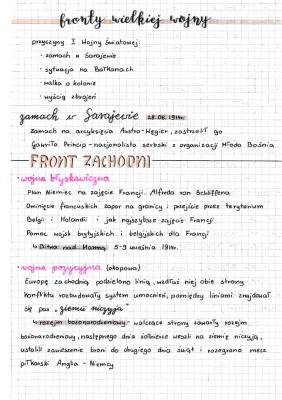 fronty wielkiej wojny
przyczyny I Wojny Światowej:
· zamach w Sarajewie
· sytuacja na Bałkanach
· walka o kolonie
· wyścig zbrojeń
zamach w Sarajewie 28.06.1914r.
Zamach na arcyksięcia Austro-Węgier, zastrzelił go
Gawriło Princip - nacjonalista serbski z organizacji Młoda Bośnia
FRONT ZACHODNI
· wojna błyskawiczna
Plan Niemiec na zajęcie Francji. Alfreda von Schlieffena
Ominięcie francuskich zapor na granicy i przejście przez terytorium
Belgii i Holandii i jak najszybsze zajęcie Francji
Pomoc wojsk brytyjskich i belgijskich dla Francji
↳ Bitwa nad Marną 5-9 września 1914r.
· wojna pozycyjna (okopowa)
Europę zachodnią podzielono linią, wzdłuż niej obie strony
konfliktu rozbudowały system umocnień, pomiędzy liniami znajdował
się pas „ziemi niczyja"
↳ rozejm bożonarodzeniowy - walczące strony zawarły rozejm
bożonarodzeniowy, następnego dnia żołnierze weszli na ziemię niczyją,
ustalili zawieszenie broni do drugiego dnia świąt i rozegrano mecz
piłkarski Anglia - Niemcy